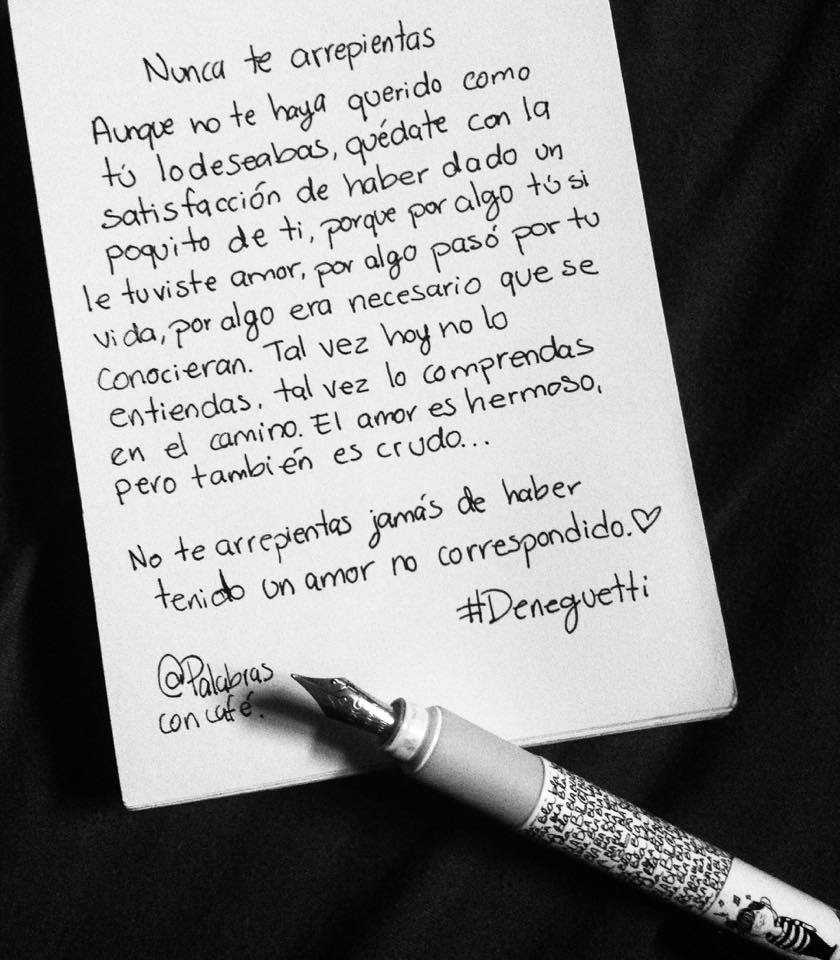 Nunca te arrepientas
Aunque no te haya querido como
tú lo deseabas, quédate con la
satisfacción de haber dado un
poquito de ti, porque por algo tú si
le tuviste amor, por algo pasó por tu
vida, por algo era necesario que se
conocieran. Tal vez hoy no lo
entiendas, tal vez lo comprendas
en el camino. El amor es hermoso,
pero también es crudo...
No te arrepientas jamás de haber
tenido un amor no correspondido.♡
#Deneguetti
@Palabras
con café.